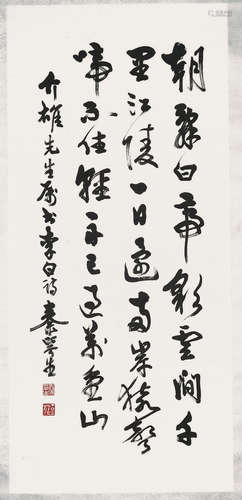 朝辭白帝彩雲間千
里江陵一日還兩岸猿聲
啼不住輕舟已過萬重山
介雄先生属书李白詩秦咢生